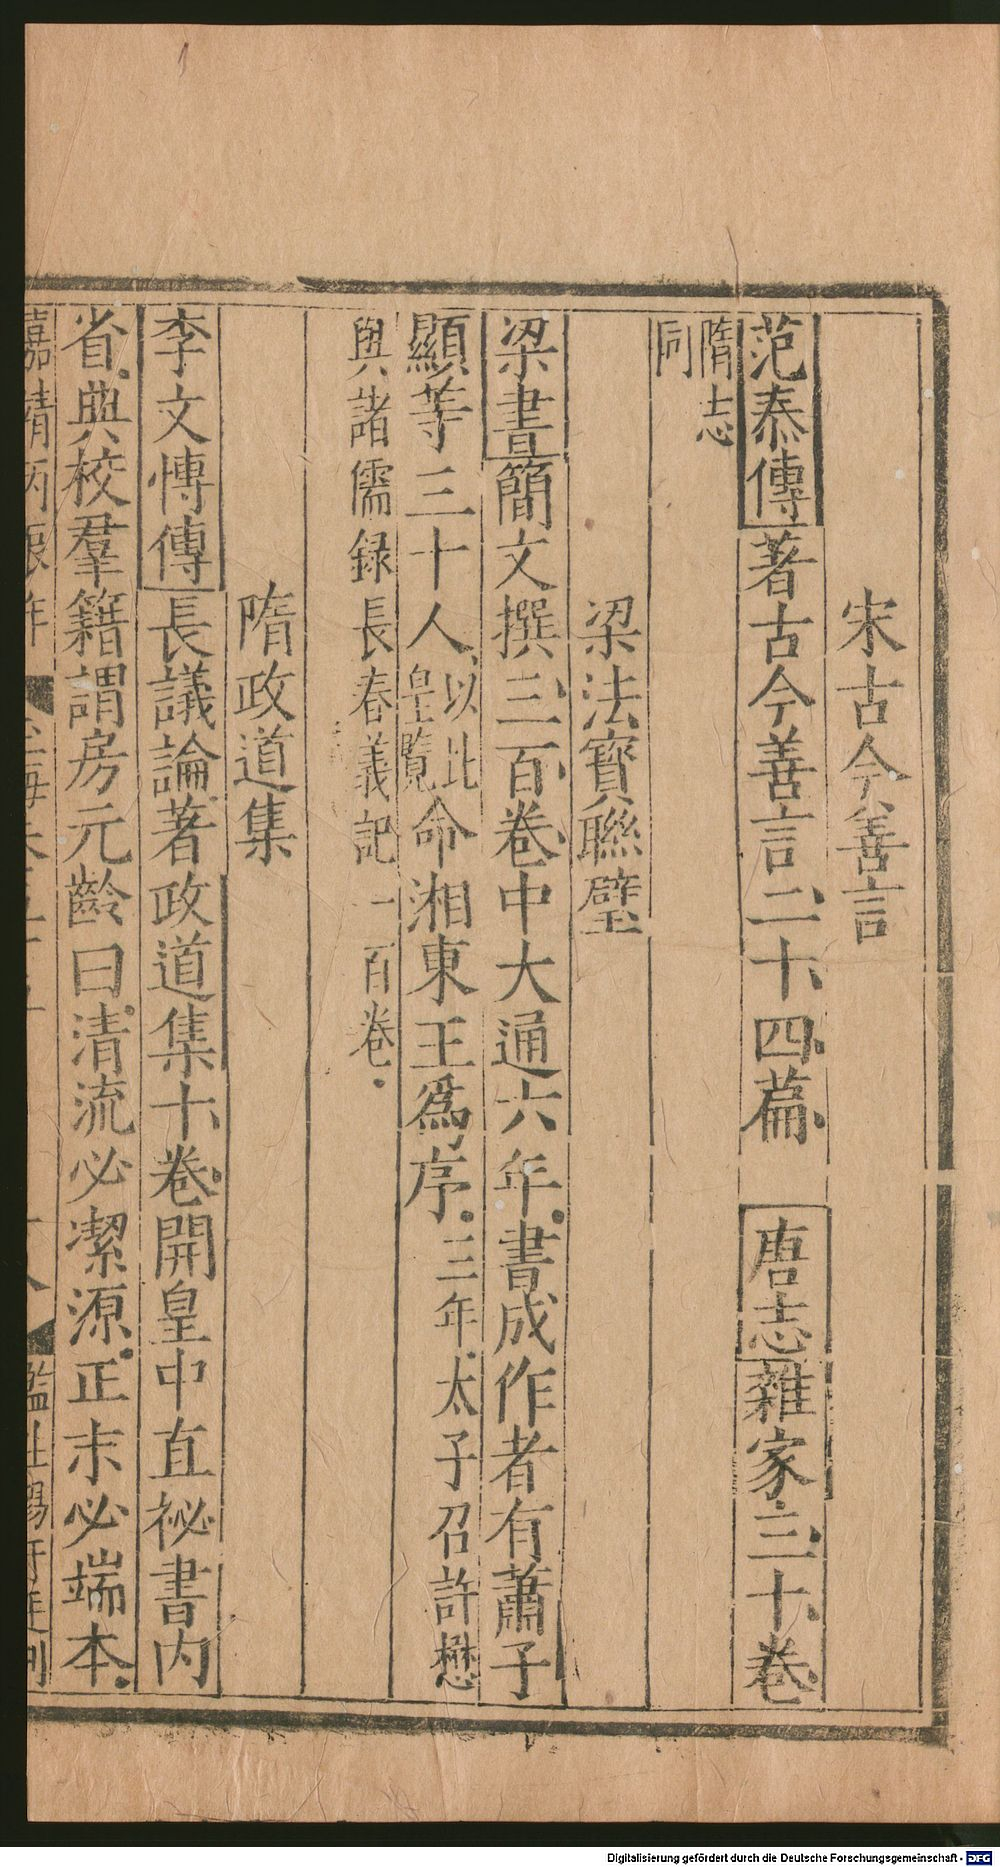 宋古今善言
范泰傳著古今善言二十四篇 唐志雜家三十卷
隋志同
梁法寶聯璧
梁書簡文撰三百卷中大通六年書成作者有蕭子
顯等三十人以比皇覽命湘東王爲序三年太子召許懋
與諸儒録長春義記一百卷
隋政道集
李文慱傳長議論著政道集十卷開皇中直祕書内
省典校羣籍謂房元齡曰清流必潔源正末必端本
嘉靖丙辰年
十八
監生楊
Digitalisierung gefördert durch die Deutsche Forschungsgemeinschaft - DFG